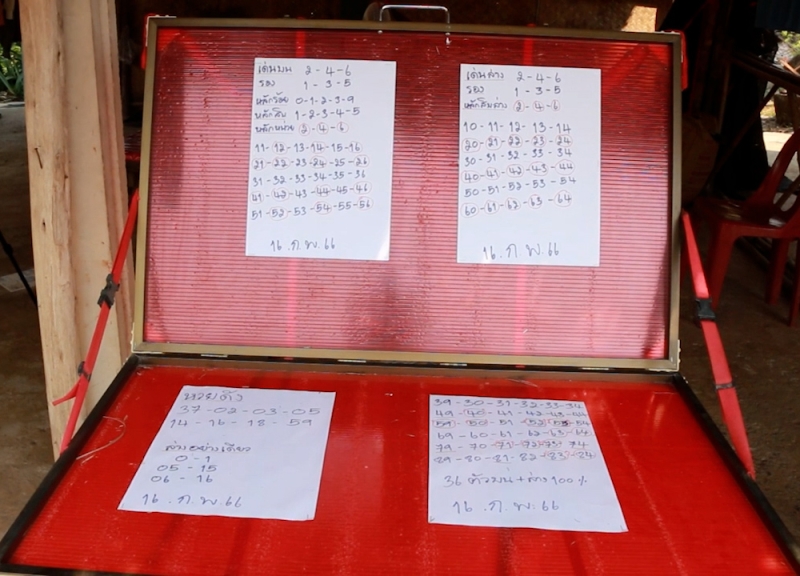 เด่นบน 2-4-6
รอง 1-3-5
หลักร้อย 0-1-2-3-9
หลักสิบ 1-2-3-4-5
หลักหน่วย 2-4-6
11-12-13-14-15-16
21-22-23-24-25-26
31-32-33-34-35-36
41-42-43-44-45-46
51-52-53-54-55-56
16.ก.พ.66
เด่นล่าง 2-4-6
รอง 1-3-5
หลักสิบล่าง 2-4-6
10-11-12-13-14
20-21-22-23-24
30-31-32-33-34
40-41-42-43-44
50-51-52-53-54
60-61-62-63-64
16.ก.พ.66
หวยดัง
37-02-03-05
14-16-18-59
ล่างอย่างเดียว
0-1
05-15
06-16
16.ก.พ.66
39-30-31-32-33-34
49-40-41-42-43-44
59-50-51-52-53-54
69-60-61-62-63-64
79-70-71-72-73-74
89-80-81-82-83-84
36 ตัวบน+ล่าง 100%
16.ก.พ.66